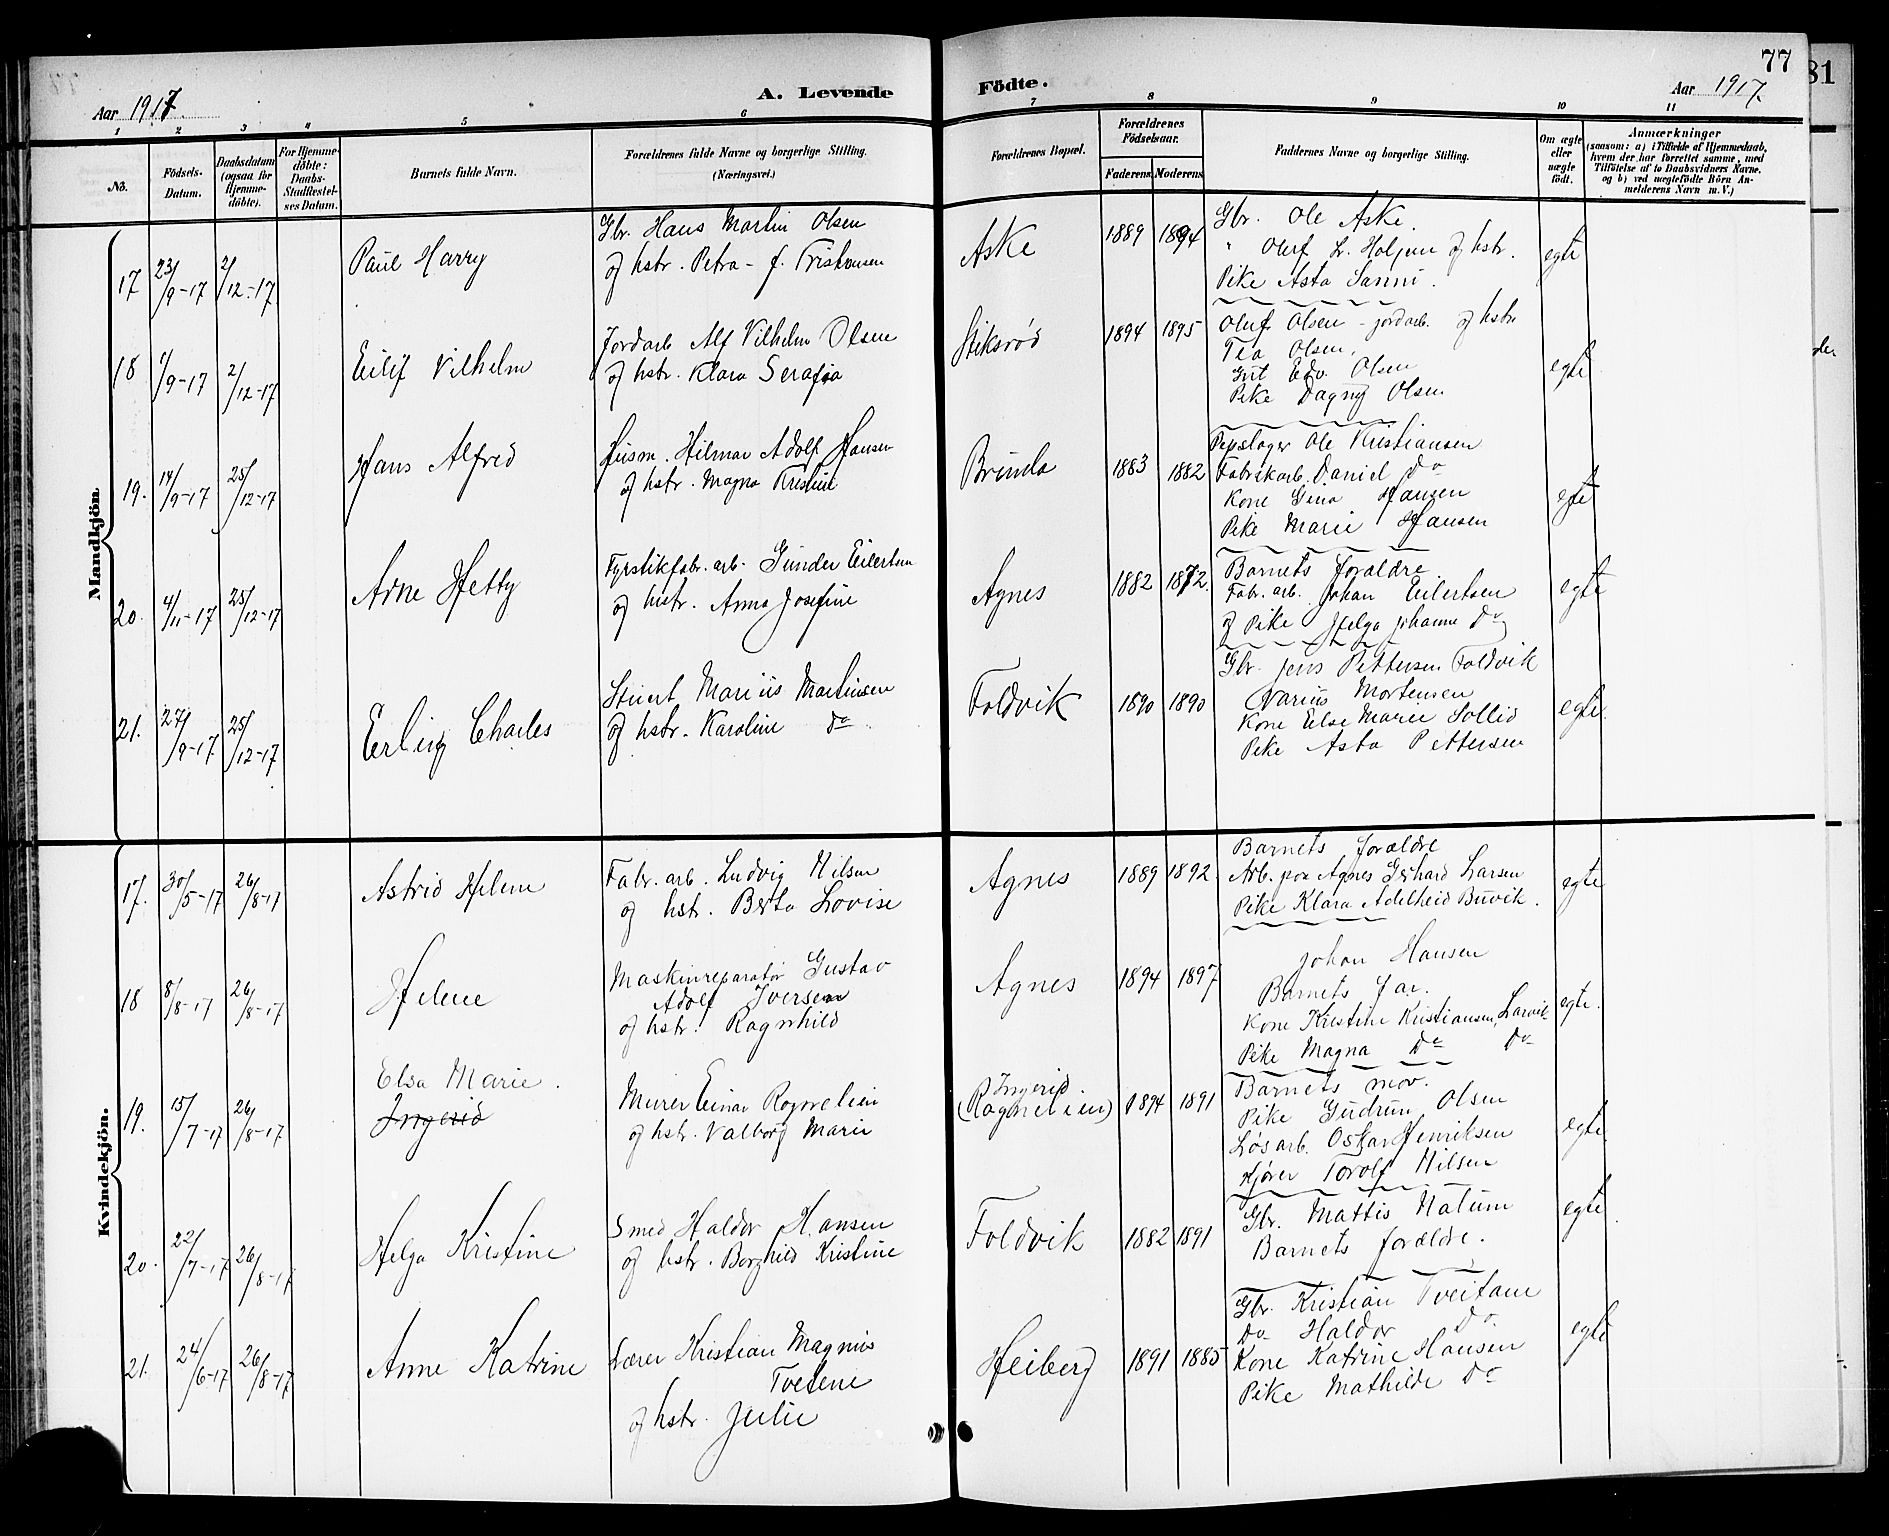 77
81
Aar 1917
A. Levende
Födte.
Aar 1917.
1 2 3 4 5 6 7 8 9 10 11
No.
Födsels-
Datum.
Daabsdatum
(ogsaa for
Hjemme-
döbte).
For Hjemme-
döbte:
Daabs-
Stadfæstel-
ses Datum.
Barnets fulde Navn.
Forældrenes fulde Navne og borgerlige Stilling.
(Næringsvei.)
Forældrenes Bopæl.
Forældrenes
Födselsaar.
Faderens.
Moderens.
Faddernes Navne og borgerlige Stilling.
Om ægte
eller
uægte
født.
Anmærkninger
(saasom: a) i Tilfælde af Hjemmedaab,
hvem der har forrettet samme, med
Tilföielse af to Daabsvidners Navne,
og b) ved uægtefödte Börn An-
melderens Navn m. V.)
Mandkjön
17 23/9-17 2/12-17
Paul Harry
Gbr. Hans Martin Olsen
og hstr. Petra - f. Tristansen
Aske
1889 1894
Gbr. Ole Aske.
" Oluf L. Holjem og hstr.
Pike Asta Sanni.
egte
18 1/9-17 2/12-17
Eilif Vilhelm
Jordarb Alf Vilhelm Olsen
og hstr. Klara Serafia
Stiksrød
1894 1895
Oluf Olsen - jordarb. og hstr
Tea Olsen.
Gut Edv. Olsen
Pike Dagny Olsen
egte
19. 14/9-17 25/12-17
Hans Alfred
Husm. Hilmar Adolf Hansen
og hstr. Magna Kristine
Brunla
1883 1882
Repslager Ole Kristiansen
Fabrikarb. Daniel Do
Kone Gina Hansen
Pike Marie Hansen
egte
20. 4/11-17 25/12-17
Arne Hetty
Fyrstikfabr. arb. Gunder Eilertsen
og hstr. Anna Josefine
Agnes
1882 1872.
Barnets forældre
Fabr. arb. Johan Eilertsen
og Pike Helga Johanne Do
egte
21. 27/9-17 25/12-17
Erling Charles
Stuert Marius Martinsen
og hstr. Karoline Do
Foldvik
1890 1890
Gbr. Jens Pettersen Foldvik
Marius Mortensen
Kone Else Marie Sollid
Pike Asta Pettersen
egte.
Kvindekjön.
17. 30/5-17 26/8-17
Astrid Helene
Fabr. arb. Ludvig Nilsen
og hstr. Berta Lovise
Agnes
1889 1892.
Barnets forældre
Arb. paa Agnes Gerhard Larsen
Pike Klara Adelheid Buvik.
egte
18 8/8-17 26/8-17
Helene
Maskinreparatør Gustav
Adolf Iversen
og hstr. Ragnhild
Agnes
1894 1897
Johan Hansen
Barnets far.
Kone Kristine Kristiansen, Larvik
Pike Magna Do Do
egte.
19. 15/7-17 26/8-17
Elsa Marie.
Ingerid
Murer Einar Rognelien
og hstr. Valborg Marie
Ingerid.
(Ragnelien)
1894 1891
Barnets mor.
Pike Gudrun Olsen
Løsarb. Oskar Henriksen
Kjører Torolf Nilsen
egte
20. 22/7-17 26/8-17
Helga Kristine
Smed Haldor Hansen
og hstr. Borghild Kristine
Foldvik
1882 1891
Gbr. Mattis Natum
Barnets forældre.
egte
21. 24/6-17 26/8-17
Anne Katrine
Lærer Kristian Magnus
Tvetene
og hstr. Julie
Heiberg
1891 1885
Gbr. Kristian Tveitane
Do Haldor Do.
Kone Katrine Hansen
Pike Mathilde Do
egte